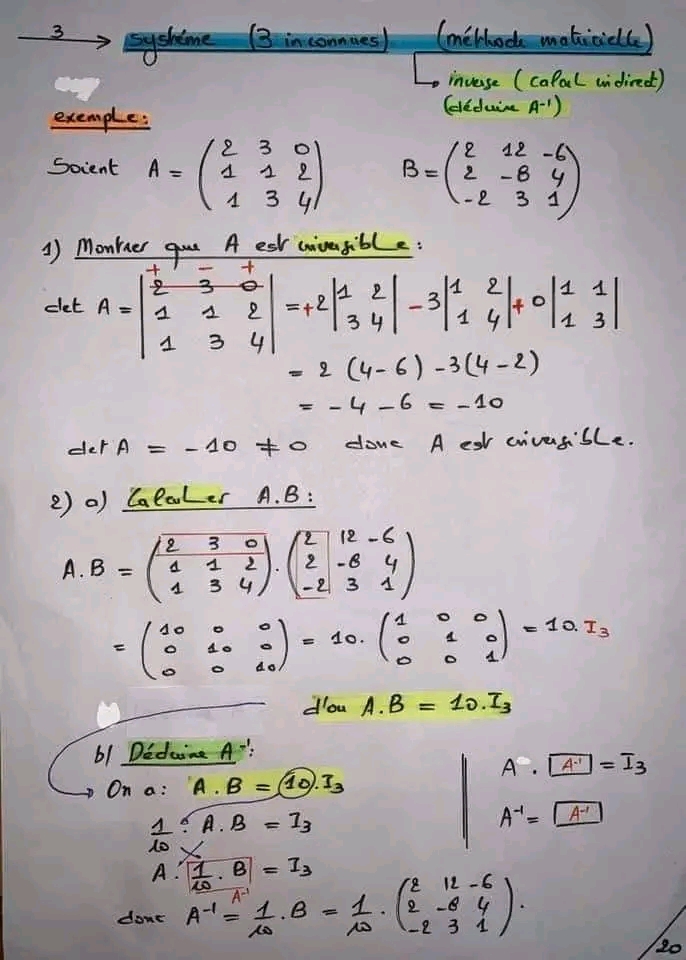 3 → système (3 inconnues) (méthode matricielle)
↳ inverse (calcul indirect)
(déduire A⁻¹)
exemple:
Soient A = (2 3 0 ; 1 1 2 ; 1 3 4) B = (2 12 -6 ; 2 -8 4 ; -2 3 1)
1) Montrer que A est inversible :
+ - +
det A = |2 3 0 ; 1 1 2 ; 1 3 4| = +2 |1 2 ; 3 4| - 3 |1 2 ; 1 4| + 0 |1 1 ; 1 3|
= 2 (4-6) - 3(4-2)
= -4 - 6 = -10
det A = -10 ≠ 0 donc A est inversible.
2) a) Calculer A.B :
A.B = (2 3 0 ; 1 1 2 ; 1 3 4) . (2 12 -6 ; 2 -8 4 ; -2 3 1)
= (10 0 0 ; 0 10 0 ; 0 0 10) = 10. (1 0 0 ; 0 1 0 ; 0 0 1) = 10. I₃
d'ou A.B = 10.I₃
b/ Déduire A⁻¹:
On a: A.B = 10.I₃
1/10 . A.B = I₃
A. 1/10 . B = I₃
A⁻¹
donc A⁻¹ = 1/10 . B = 1/10 . (2 12 -6 ; 2 -8 4 ; -2 3 1).
A . A⁻¹ = I₃
A⁻¹ = A⁻¹
20